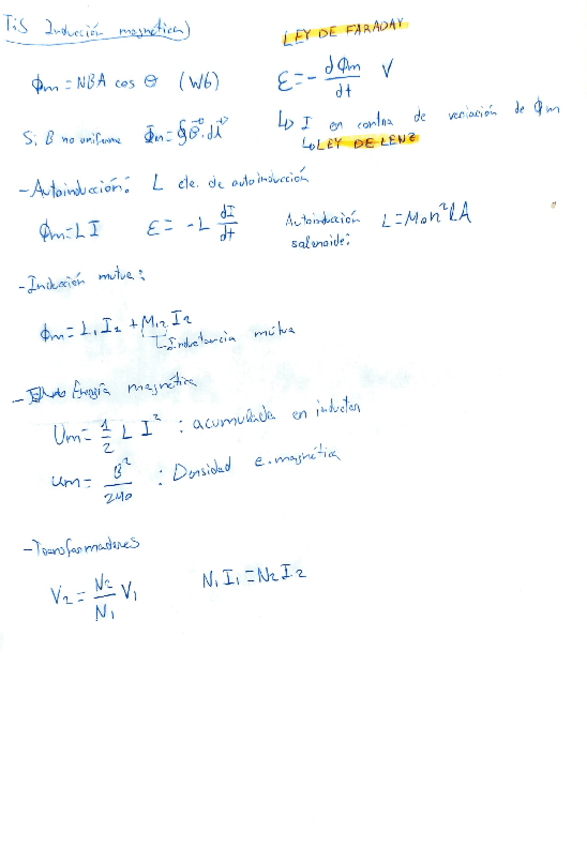 T:5 Inducción magnética)
LEY DE FARADAY
Φm = NBA cos θ (Wb)
ε = - dΦm/dt V
↳ I en contra de variación de Φm
↳ LEY DE LENZ
Si B no uniforme Φm = ∮B·dA
- Autoinducción: L cte. de autoinducción
Φm = L I ε = -L dI/dt
Autoinducción L = μ0 n² l A
solenoide:
- Inducción mutua:
Φm = L1 I2 + M12 I2
Inductancia mútua
- Energía magnética
Um = 1/2 L I² : acumulada en inductor
um = B²/2μ0 : Densidad e. magnética
- Transformadores
V2 = N2/N1 V1 N1 I1 = N2 I2